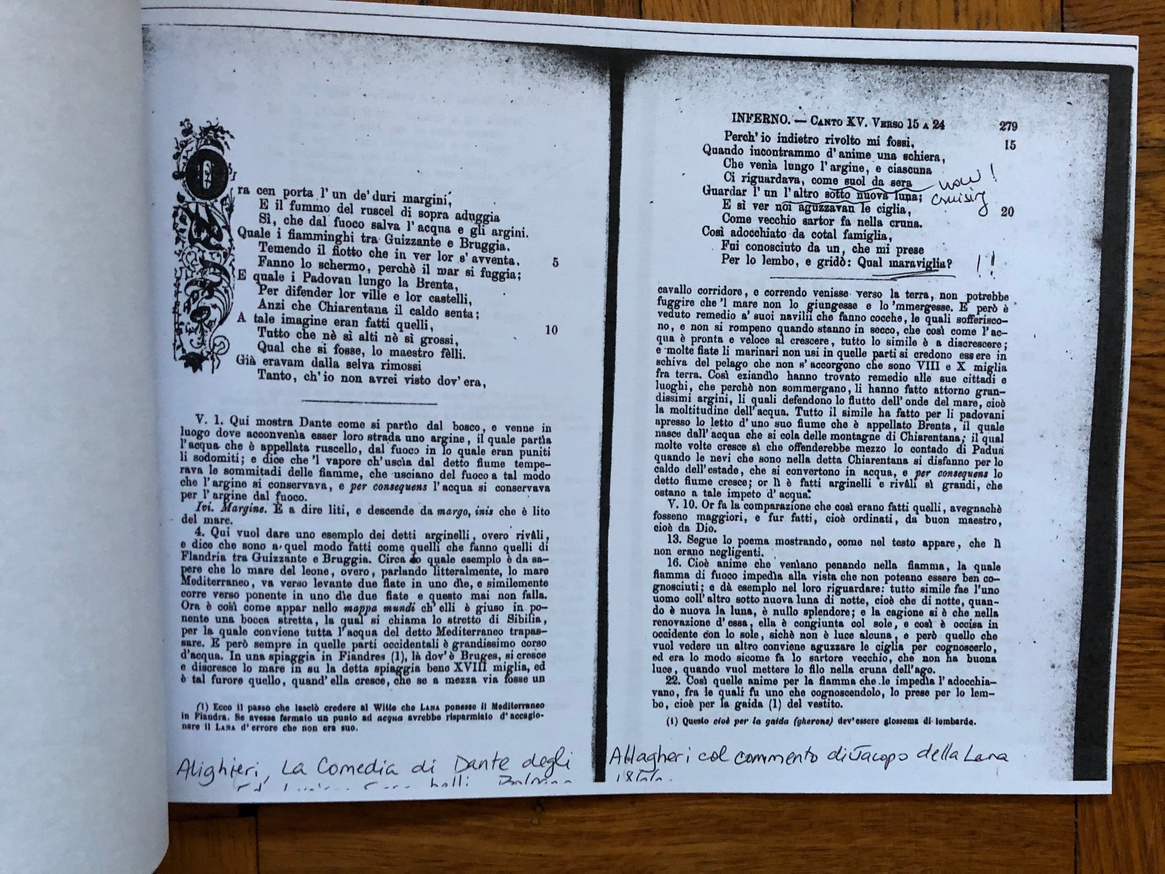 Ora cen porta l'un de' duri margini,
E il fummo del ruscel di sopra aduggia
Sì, che dal fuoco salva l'acqua e gli argini.
Quale i fiamminghi tra Guizzante e Bruggia.
Temendo il fiotto che in ver lor s'avventa. 5
Fanno lo schermo, perchè il mar si fuggia;
E quale i Padovan lungo la Brenta,
Per difender lor ville e lor castelli,
Anzi che Chiarentana il caldo senta;
A tale imagine eran fatti quelli, 10
Tutto che nè sì alti nè sì grossi,
Qual che si fosse, lo maestro fèlli.
Già eravam dalla selva rimossi
Tanto, ch'io non avrei visto dov'era,
V. 1. Qui mostra Dante come si partìo dal bosco, e venne in
luogo dove acconvenìa esser loro strada uno argine, il quale partìa
l'acqua che è appellata ruscello, dal fuoco in lo quale eran puniti
li sodomiti; e dice che 'l vapore ch'uscìa dal detto fiume tempe-
rava le sommitadi delle fiamme, che usciano del fuoco a tal modo
che l'argine si conservava, e per consequens l'acqua si conservava
per l'argine dal fuoco.
Ivi. Margine. È a dire liti, e descende da margo, inis che è lito
del mare.
4. Qui vuol dare uno esempio dei detti arginelli, overo rivàli,
e dice che sono a quel modo fatti come quelli che fanno quelli di
Flandria tra Guizzante e Bruggia. Circa lo quale esempio è da sa-
pere che lo mare del leone, overo, parlando litteralmente, lo mare
Mediterraneo, va verso levante due fiate in uno dìe, e similemente
corre verso ponente in uno dìe due fiate e questo mai non falla.
Ora è così come appar nello mappa mundi ch'elli è giuso in po-
nente una bocca stretta, la qual si chiama lo stretto di Sibilia,
per la quale conviene tutta l'acqua del detto Mediterraneo trapas-
sare. E però sempre in quelle parti occidentali è grandissimo corso
d'acqua. In una spiaggia in Fiandres (1), là dov'è Bruges, si cresce
e discresce lo mare in su la detta spiaggia bene XVIII miglia, ed
è tal furore quello, quand'ella cresce, che se a mezza via fosse un
(1) Ecco il passo che lasciò credere al Witte che LANA ponesse il Mediterraneo
in Fiandra. Se avesse fermato un punto ad acqua avrebbe risparmiato d'accagio-
nare il LANA d'errore che non era suo.
Alighieri, La Comedia di Dante degli
INFERNO. — CANTO XV. VERSO 15 A 24 279
Perch'io indietro rivolto mi fossi, 15
Quando incontrammo d'anime una schiera,
Che venìa lungo l'argine, e ciascuna
Ci riguardava, come suol da sera
Guardar l'un l'altro sotto nuova luna;
wow!
cruising
E sì ver noi aguzzavan le ciglia, 20
Come vecchio sartor fa nella cruna.
Così adocchiato da cotal famiglia,
Fui conosciuto da un, che mi prese
Per lo lembo, e gridò: Qual maraviglia? !!
cavallo corridore, e correndo venisse verso la terra, non potrebbe
fuggire che 'l mare non lo giungesse e lo 'mmergesse. E però è
veduto remedio a' suoi navilli che fanno cocche, le quali sofferisco-
no, e non si rompeno quando stanno in secco, che così come l'ac-
qua è pronta e veloce al crescere, tutto lo simile è a discrescere;
e molte fiate li marinari non usi in quelle parti si credono essere in
schiva del pelago che non s'accorgono che sono VIII e X miglia
fra terra. Così eziandìo hanno trovato remedio alle sue cittadi e
luoghi, che perchè non sommergano, li hanno fatto attorno gran-
dissimi argini, li quali defendono lo flutto dell'onde del mare, cioè
la moltitudine dell'acqua. Tutto il simile ha fatto per li padovani
apresso lo letto d'uno suo fiume che è appellato Brenta, il quale
nasce dall'acqua che si cola delle montagne di Chiarentana; il qual
molte volte cresce sì che offenderebbe mezzo lo contado di Padua
quando le nevi che sono nella detta Chiarentana si disfanno per lo
caldo dell'estade, che si convertono in acqua, e per consequens lo
detto fiume cresce; or lì è fatti arginelli e rivàli sì grandi, che
ostano a tale impeto d'acqua.
V. 10. Or fa la comparazione che così erano fatti quelli, avegnachè
fosseno maggiori, e fur fatti, cioè ordinati, da buon maestro,
cioè da Dio.
13. Segue lo poema mostrando, come nel testo appare, che lì
non erano negligenti.
16. Cioè anime che venìano penando nella fiamma, la quale
fiamma di fuoco impedìa alla vista che non poteano essere ben co-
gnosciuti; e dà esempio nel loro riguardare: tutto simile fae l'uno
uomo coll'altro sotto nuova luna di notte, cioè che di notte, quan-
do è nuova la luna, è nullo splendore; e la cagione si è che nella
renovazione d'essa, ella è congiunta col sole, e così è occisa in
occidente con lo sole, sichè non è luce alcuna, e però quello che
vuol vedere un altro conviene aguzzare le ciglia per cognoscerlo,
ed era lo modo sicome fa lo sartore vecchio, che non ha buona
luce, quando vuol mettere lo filo nella cruna dell'ago.
22. Così quelle anime per la fiamma che le impedìa l'adocchia-
vano, fra le quali fu uno che cognoscendolo, lo prese per lo lem-
bo, cioè per la gaida (1) del vestito.
(1) Questo cioè per la gaida (gherone) dev'essere glossema di lombarda.
Allagheri col commento di Jacopo della Lana